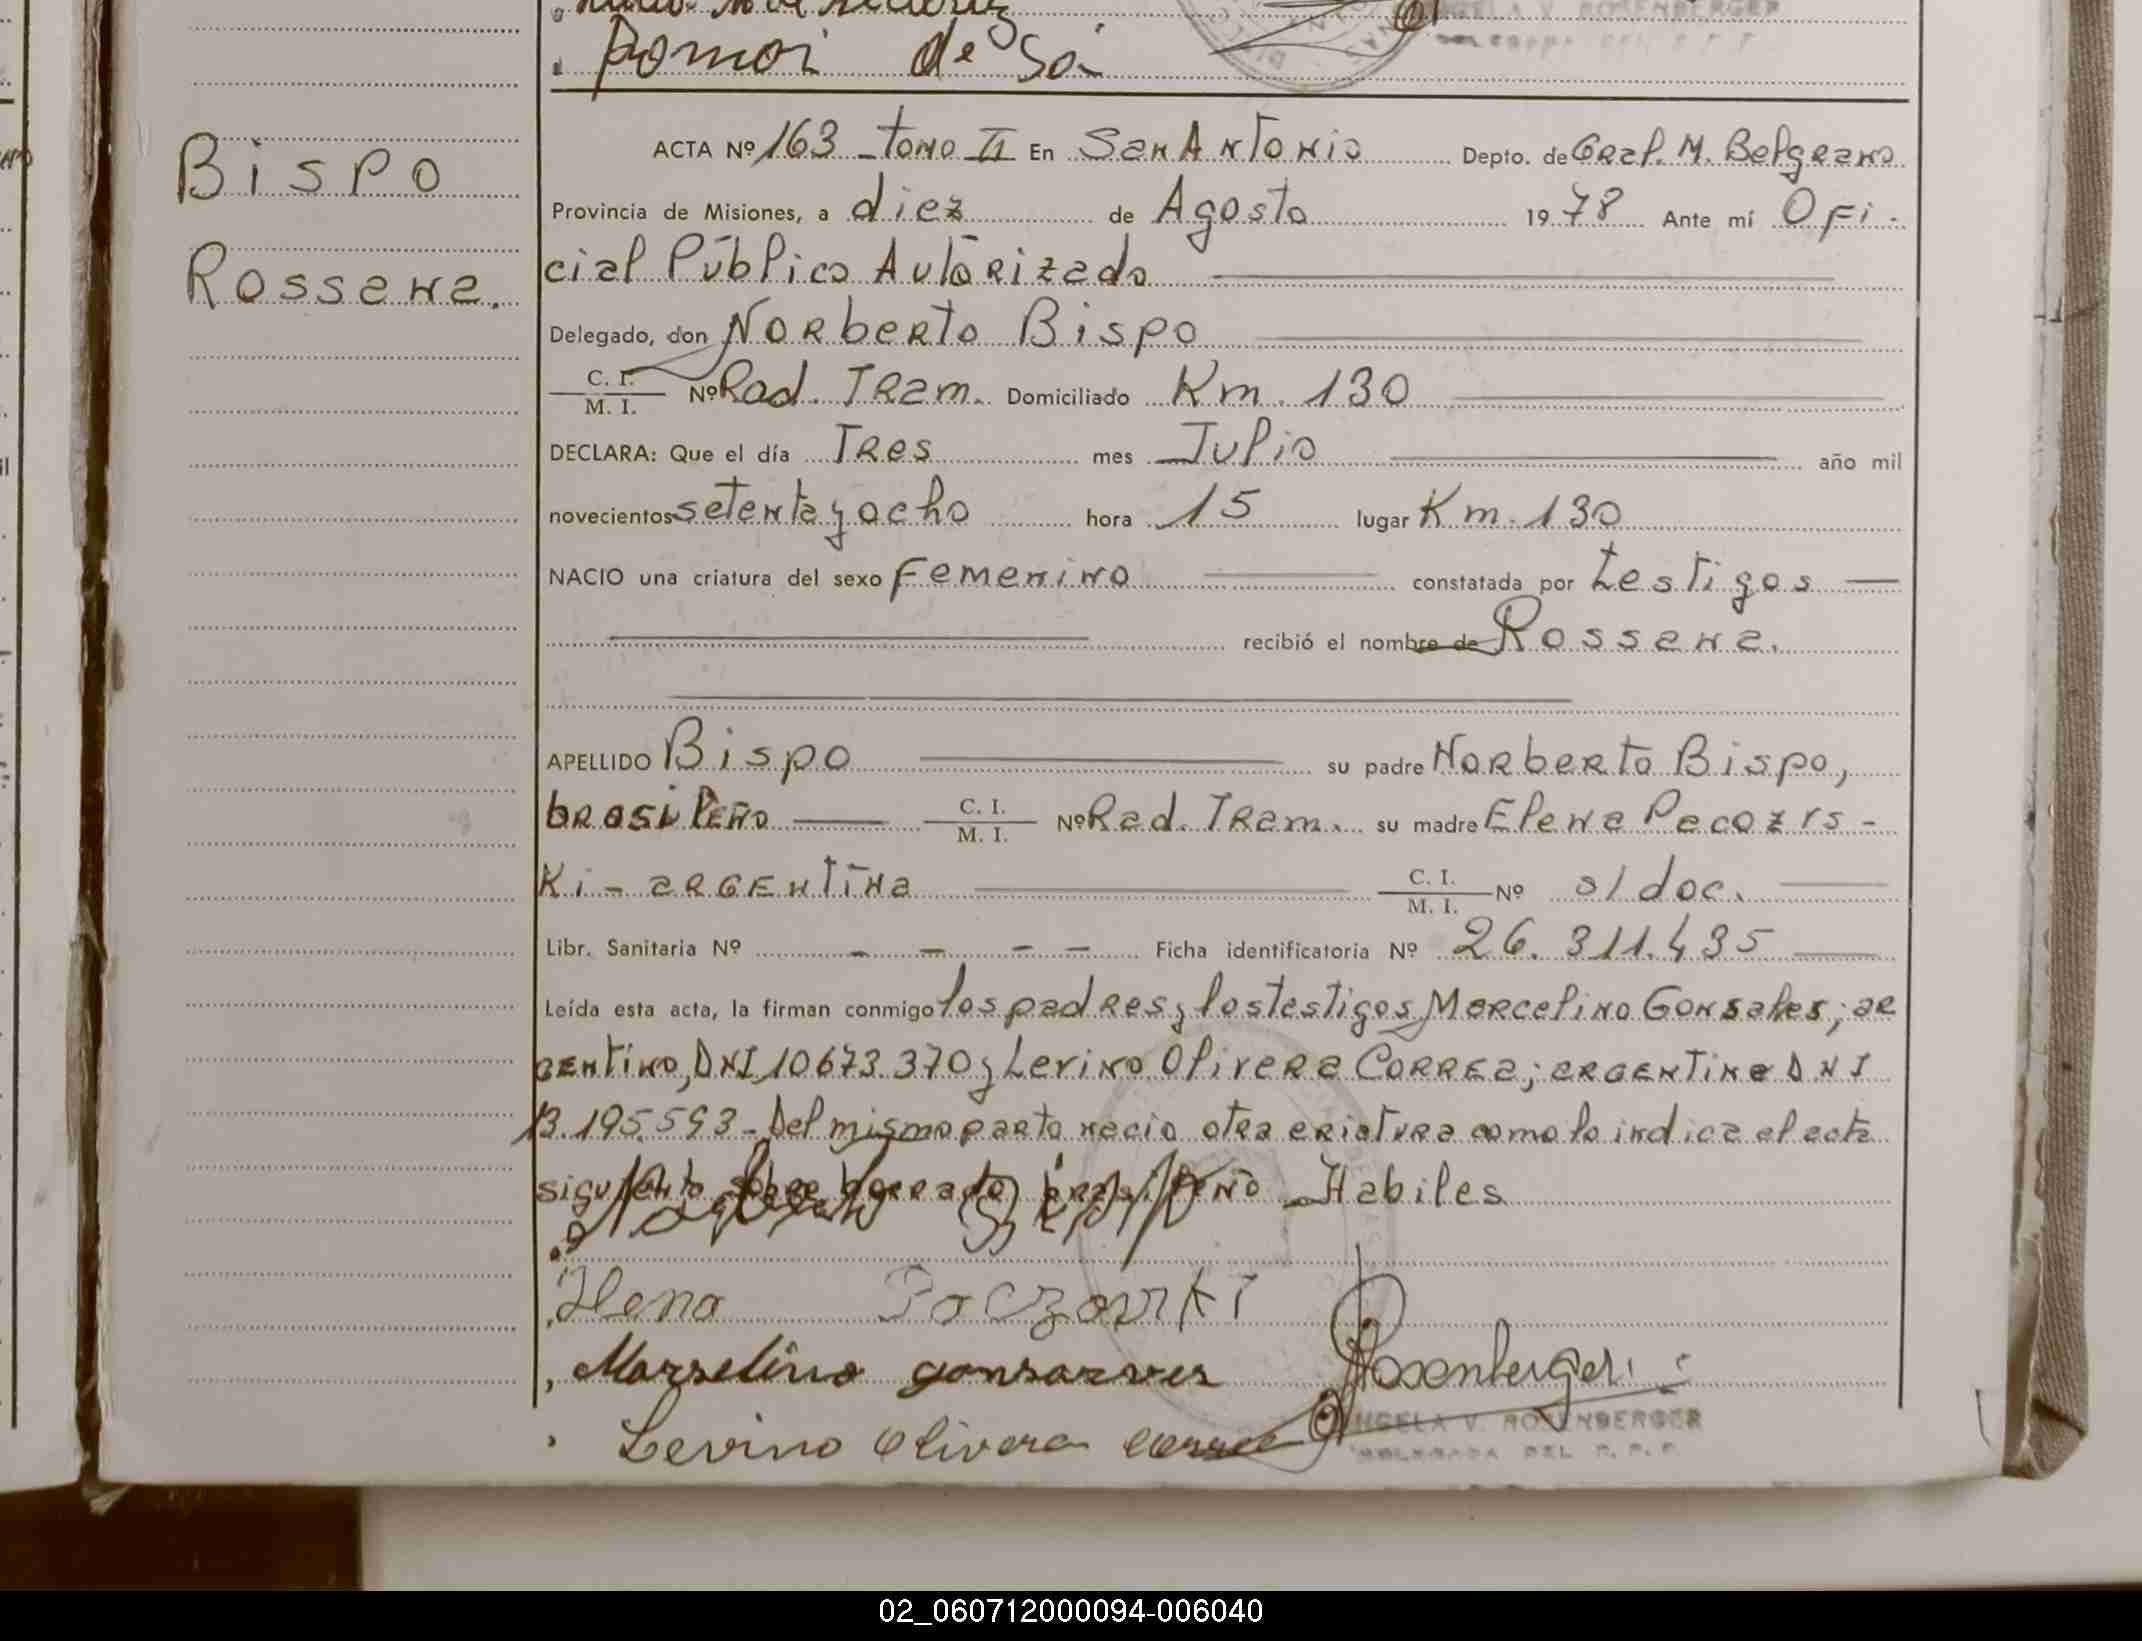 Romoi de Sá
ANGELA V. ROSENBERGER
Bispo
Rossana.
ACTA Nº 163 - tomo II En San Antonio Depto. de Gral. M. Belgrano
Provincia de Misiones, a diez de Agosto 1978 Ante mí Ofi-
cial Público Autorizado
Delegado, don Norberto Bispo
C. I. / M. I. Nº Rad. Tram. Domiciliado Km. 130
DECLARA: Que el día Tres mes Julio año mil
novecientos setenta y ocho hora 15 lugar Km. 130
NACIO una criatura del sexo Femenino constatada por testigos
recibió el nombre de Rossana.
APELLIDO Bispo su padre Norberto Bispo,
brasileño C. I. / M. I. Nº Rad. Tram. su madre Elena Pacozis-
Ki - argentina C. I. / M. I. Nº s/doc.
Libr. Sanitaria Nº - - - - Ficha identificatoria Nº 26.311.435
Leída esta acta, la firman conmigo los padres y los testigos Marcelino Gonsales; ar
gentino, DNI 10673.370 y Levino Olivera Correa; argentino DNI
13.195.593 - Del mismo parto nacio otra criatura como lo indica el acta
siguiente sobre borrado brasileño - Habiles
Elena Paczovski
Marselino gonsarves
Rosenberger
Levino Olivera Correa
ANGELA V. ROSENBERGER
DELEGADA DEL R. P. P.
02_060712000094-006040